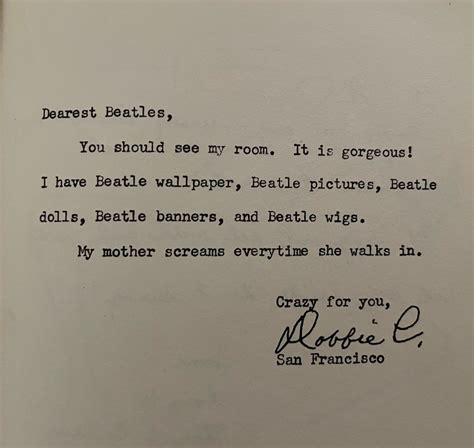 Dearest Beatles,
You should see my room. It is gorgeous!
I have Beatle wallpaper, Beatle pictures, Beatle
dolls, Beatle banners, and Beatle wigs.
My mother screams everytime she walks in.
Crazy for you,
Dobbie C.
San Francisco